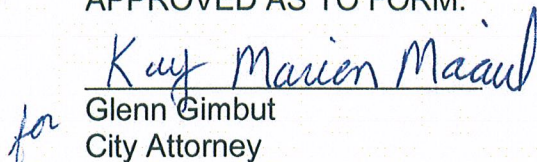 APPROVED AS TO FORM:
Kay Marion
for Glenn Gimbut
City Attorney